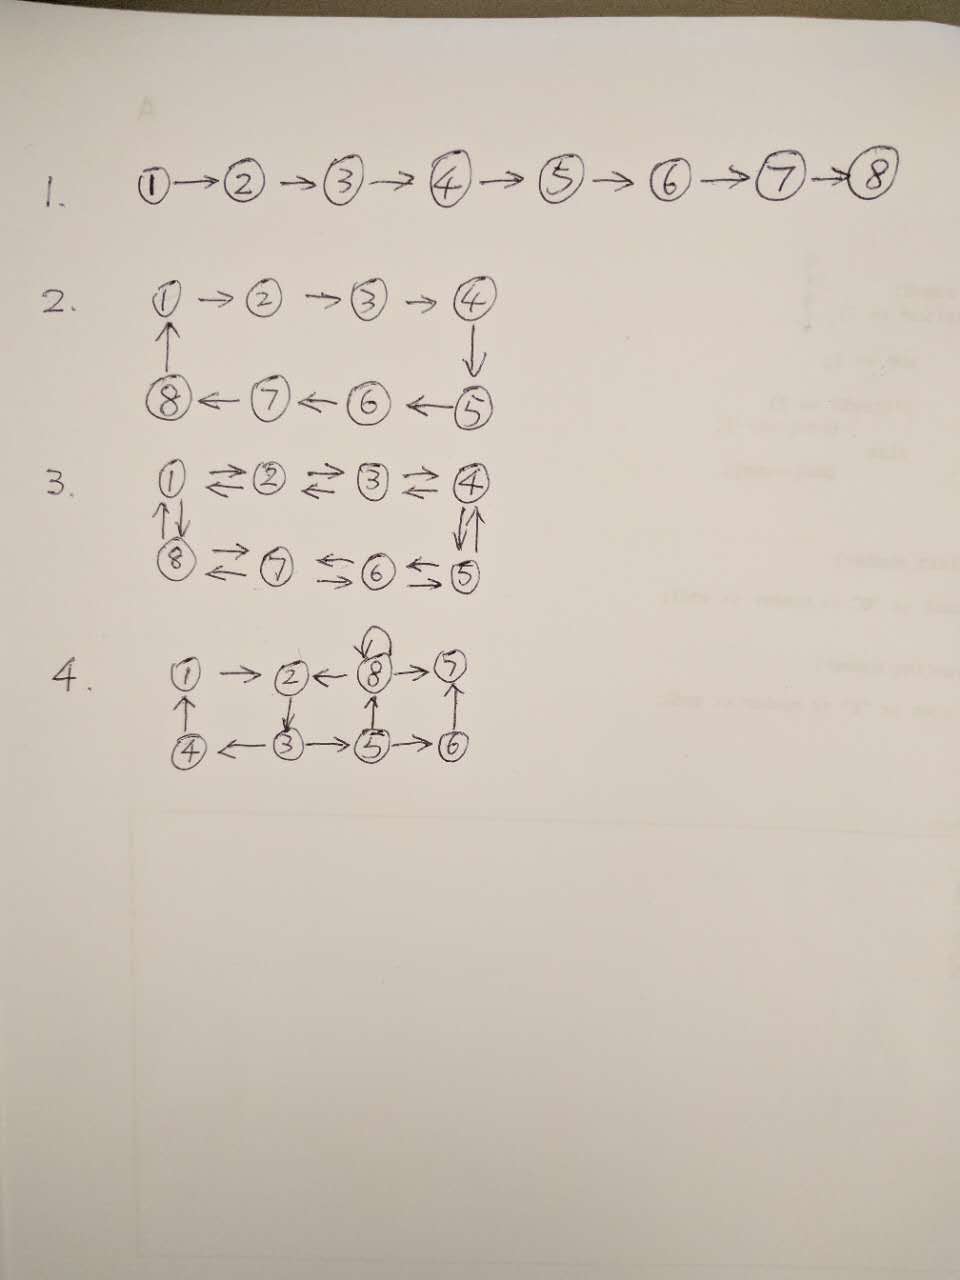 1. ① → ② → ③ → ④ → ⑤ → ⑥ → ⑦ → ⑧
2. ① → ② → ③ → ④
↑ ↓
⑧ ← ⑦ ← ⑥ ← ⑤
3. ① ⇄ ② ⇄ ③ ⇄ ④
↑↓ ↓↑
⑧ ⇄ ⑦ ⇆ ⑥ ⇆ ⑤
4. ① → ② ← ⑧ → ⑦
↑ ↓ ↑ ↑
④ ← ③ → ⑤ → ⑥